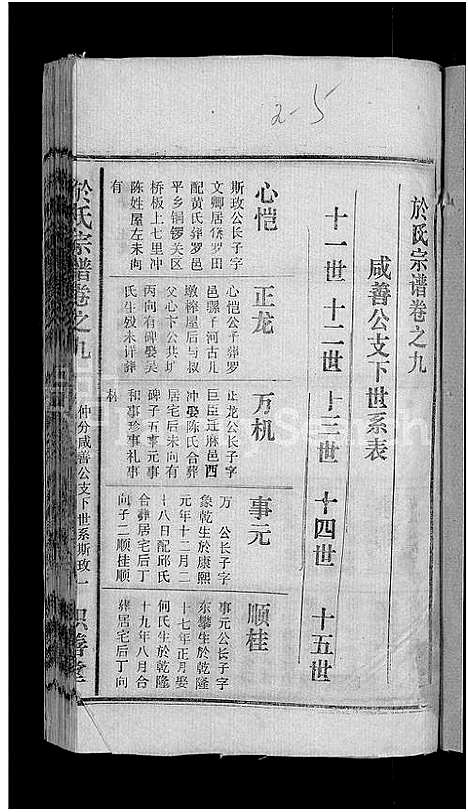 2-5
於氏宗谱卷之九
咸善公支下世系表
十一世 十二世 十三世 十四世 十五世
心恺
斯政公长子字
文卿居徐罗田
配黄氏葬罗邑
平乡铜锣关区
桥板上七里冲
陈姓屋左未向
有
正龙
心恺公子葬罗
邑骡千河古儿
墩榨屋后与叔
父心下公共圹
丙向有碑娶吴
氏生殁未详葬
万机
正龙公长子字
巨臣迁麻邑西
冲娶陈氏合葬
居宅后未向有
碑子五事元事
和事珍事礼事
林
事元
万 公长子字
象乾生於康熙
元年十二月二
十八日配邱氏
合葬居宅后丁
向子二顺桂顺
顺桂
事元公长子字
东攀生於乾隆
十七年正月娶
何氏生於乾隆
十九年八月合
葬居宅后丁向
於氏宗谱卷之九
仲分咸善公支下世系斯政一